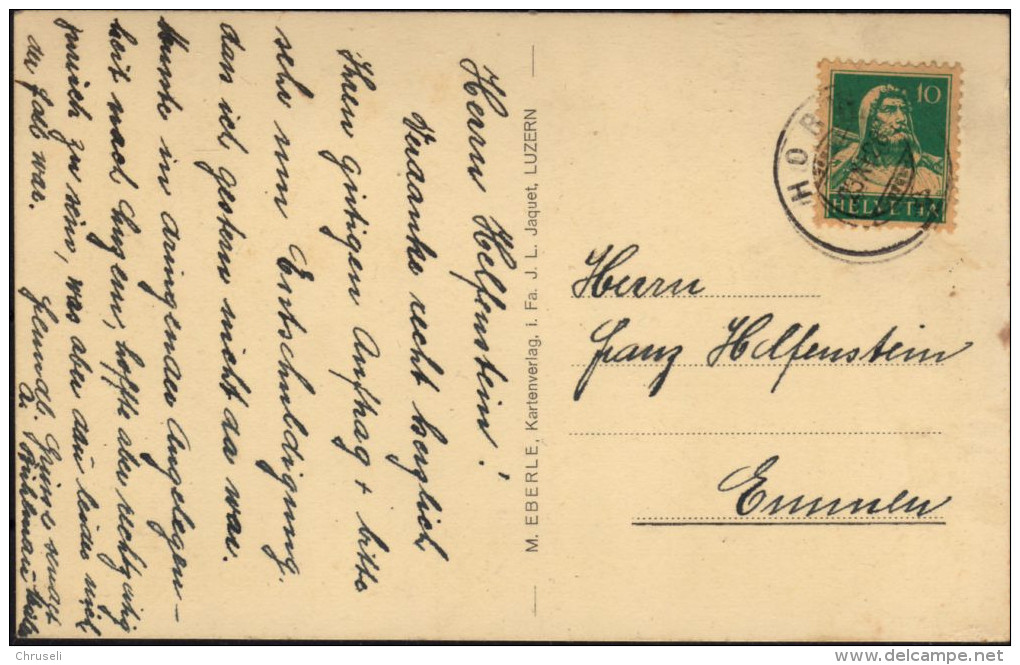 Herrn Helfenstein!
Verdanke recht herzlich
Ihren gütigen Anfrag + bitte
sehr um Entschuldigung.
dan ich gestern nicht da war.
Musste in dringender Angelegen-
heit nach Luzern, hoffte aber rechtzeitig
zurück zu sein, was aber dan leider nicht
der Fall war.
Freundl. Grüsse sendet
M. EBERLE, Kartenverlag, i. Fa. J. L. Jaquet, LUZERN
10
HELVETIA
Herrn
Franz Helfenstein
Emmen
Chruseli
delcampe.net